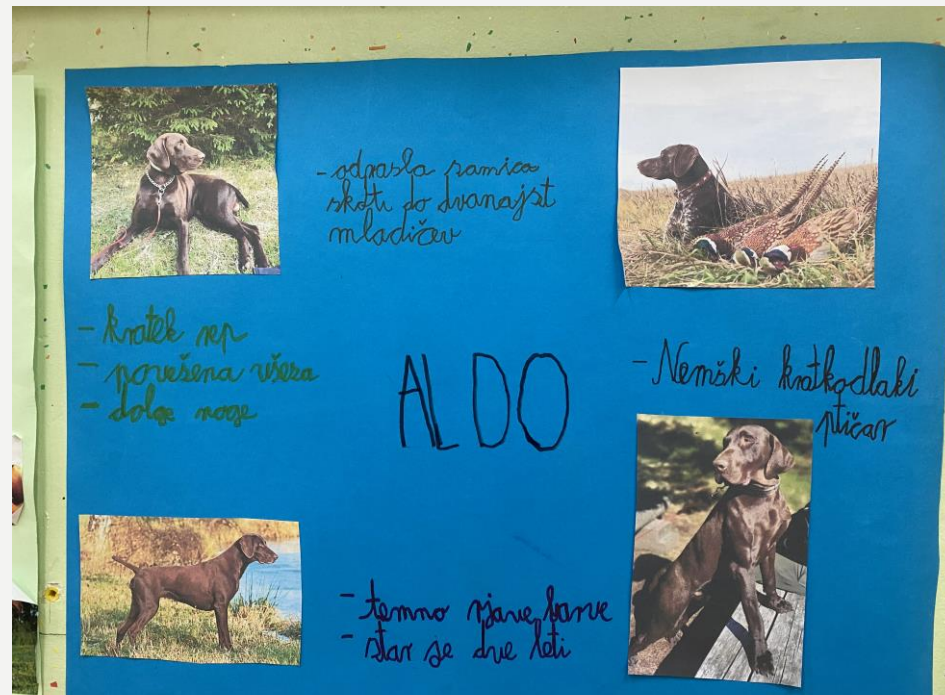 - odrasla samica
skoti do dvanajst
mladičev
- kratek rep
- povešena ušesa
- dolge noge
ALDO
- Nemški kratkodlaki
ptičar
- temno rjave barve
- star je dve leti